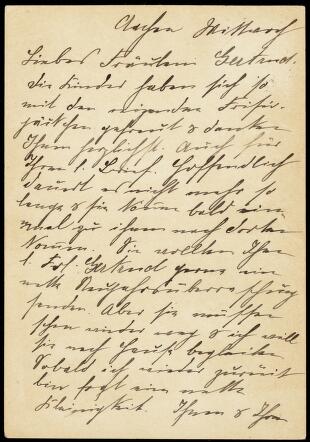 Aachen Mittwoch
Liebes Fräulein Gertrud.
die Kinder haben sich so
mit den
gefreut & danken
Ihnen herzlichst. Auch für
Ihren l. Brief. Hoffentlich
dauert es nicht mehr so
lange & Sie können bald ein-
mal zu ihnen nach
kommen. Sie wollten Ihnen
l. Frl. Gertrud gerne eine
nette Neujahrsüberraschung
senden. Aber sie mussten
schon wieder weg & ich will
sie nach Hause begleiten
Sobald ich wieder zurück
bin folgt eine nette
Kleinigkeit. Ihnen & Ihren